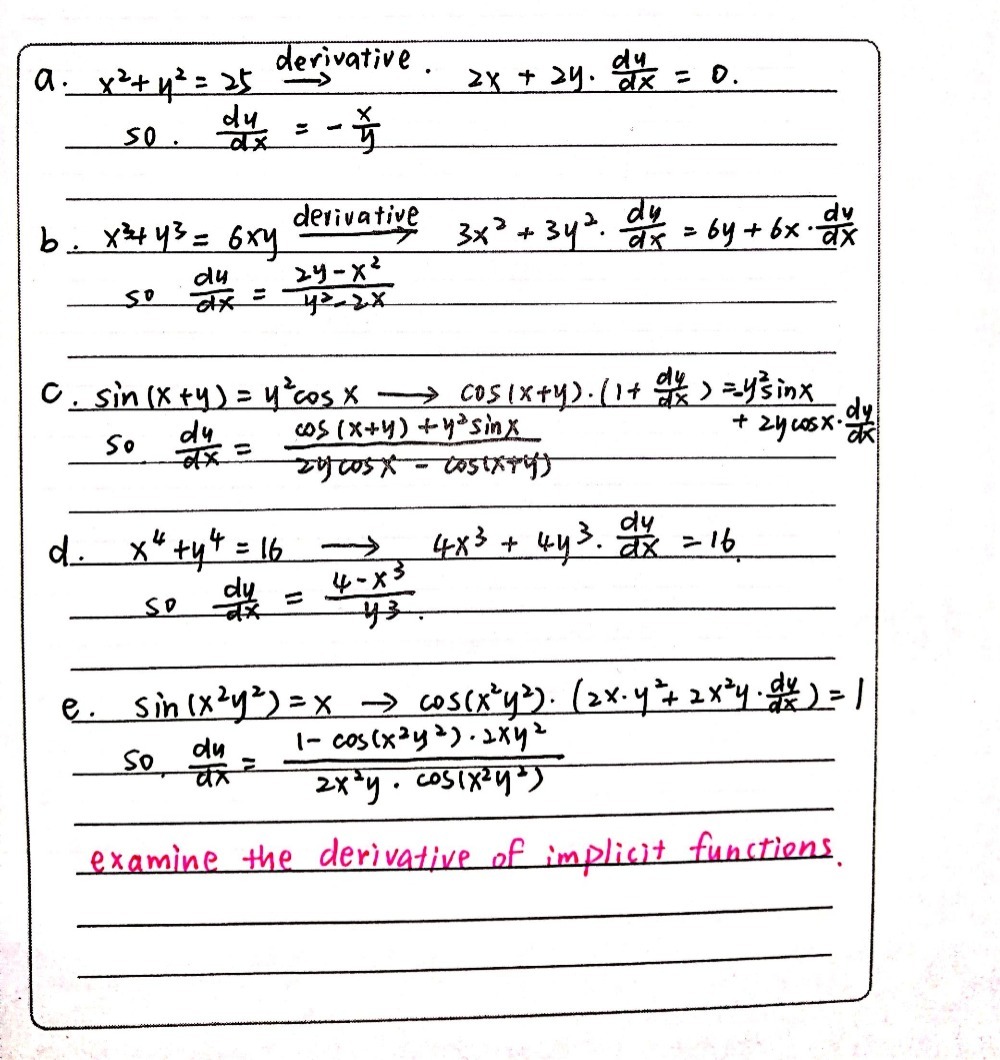 a. x²+y² = 25 derivative → . 2x + 2y · dy/dx = 0.
so . dy/dx = - x/y
b. x³+y³ = 6xy derivative → 3x² + 3y² · dy/dx = 6y + 6x · dy/dx
so dy/dx = (2y-x²)/(y²-2x)
c. sin(x+y) = y²cos x → cos(x+y)·(1+ dy/dx) = -y²sinx
+ 2y cosx · dy/dx
so dy/dx = (cos(x+y) + y²sinx)/(2y cosx - cos(x+y))
d. x⁴+y⁴ = 16 → 4x³ + 4y³ · dy/dx = 16.
so dy/dx = (4-x³)/(y³).
e. sin(x²y²) = x → cos(x²y²)·(2x·y²+2x²y· dy/dx) = 1
so. dy/dx = (1- cos(x²y²)·2xy²)/(2x²y · cos(x²y²))
examine the derivative of implicit functions.